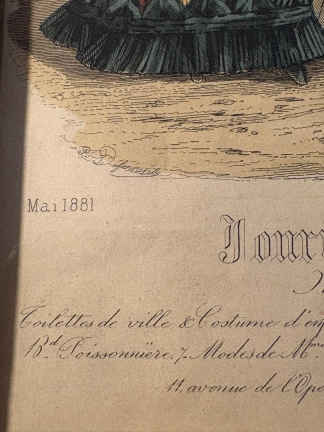 Mai 1881
Jour
Toilettes de ville & Costume d'en
Bd. Poissonnière, 7. Modes de Mme.
11, avenue de l'Ope